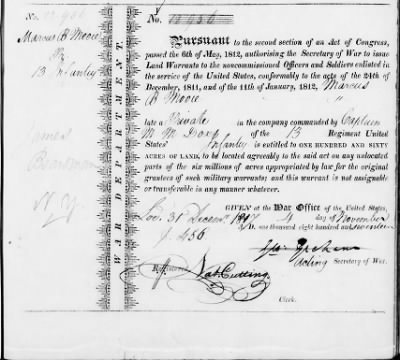 No. 12,956
Marcus B Moore
13 Infantry
James
N. Y.
WAR DEPARTMENT.
No. 12,956
Pursuant to the second section of an Act of Congress,
passed the 6th of May, 1812, authorising the Secretary of War to issue
Land Warrants to the noncommissioned Officers and Soldiers enlisted in
the service of the United States, conformably to the acts of the 24th of
December, 1811, and of the 11th of January, 1812, Marcus
B Moore
late a Private in the company commanded by Captain
of the 13 Regiment United
States' Infantry is entitled to ONE HUNDRED AND SIXTY
ACRES OF LAND, to be located agreeably to the said act on any unlocated
parts of the six millions of acres appropriated by law for the original
grantees of such military warrants; and this warrant is not assignable
or transferable in any manner whatever.
GIVEN at the War Office of the United States,
this 4 day of November
A.D. one thousand eight hundred and seventeen
Loc. 31 Decem. 1817
f. 456
Geo: Graham
Acting Secretary of War.
Nat Cutting
Clerk.